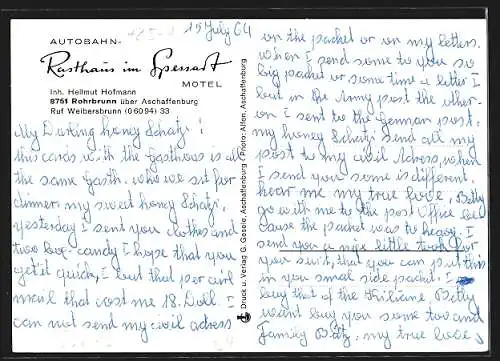 15 July 64
AUTOBAHN-
Rasthaus im Spessart
MOTEL
Inh. Hellmut Hofmann
8751 Rohrbrunn über Aschaffenburg
Ruf Weibersbrunn (0 60 94) 33
My Darling honey Schatzi!
this cards with the Gasthous is all
the same Gasth. who we sit for
dinner my sweet honey Schatzi,
yesterday I sent you clothes and
two box-candy I hope that you
get it quick, I but that per air
mail that cost me 18. Doll I
can not send my civil adress
Druck u. Verlag G. Gosele, Aschaffenburg / Photo: Alfen, Aschaffenburg
on the packet or on my letters.
When I send some to you so
big packet or some time a letter
but in the Army post the other-
on I sent to the German post,
my honey Schatzi send all my
post to my civil Adress, when
I send you some is different.
hear me my true love, Betty
go with me to the post Office be-
cause the packet was to heavy. I
send you a nice little for
your suit, that you can put this
in you small side packet. I
buy that of the Betty
want buy you some too and
Family my true love